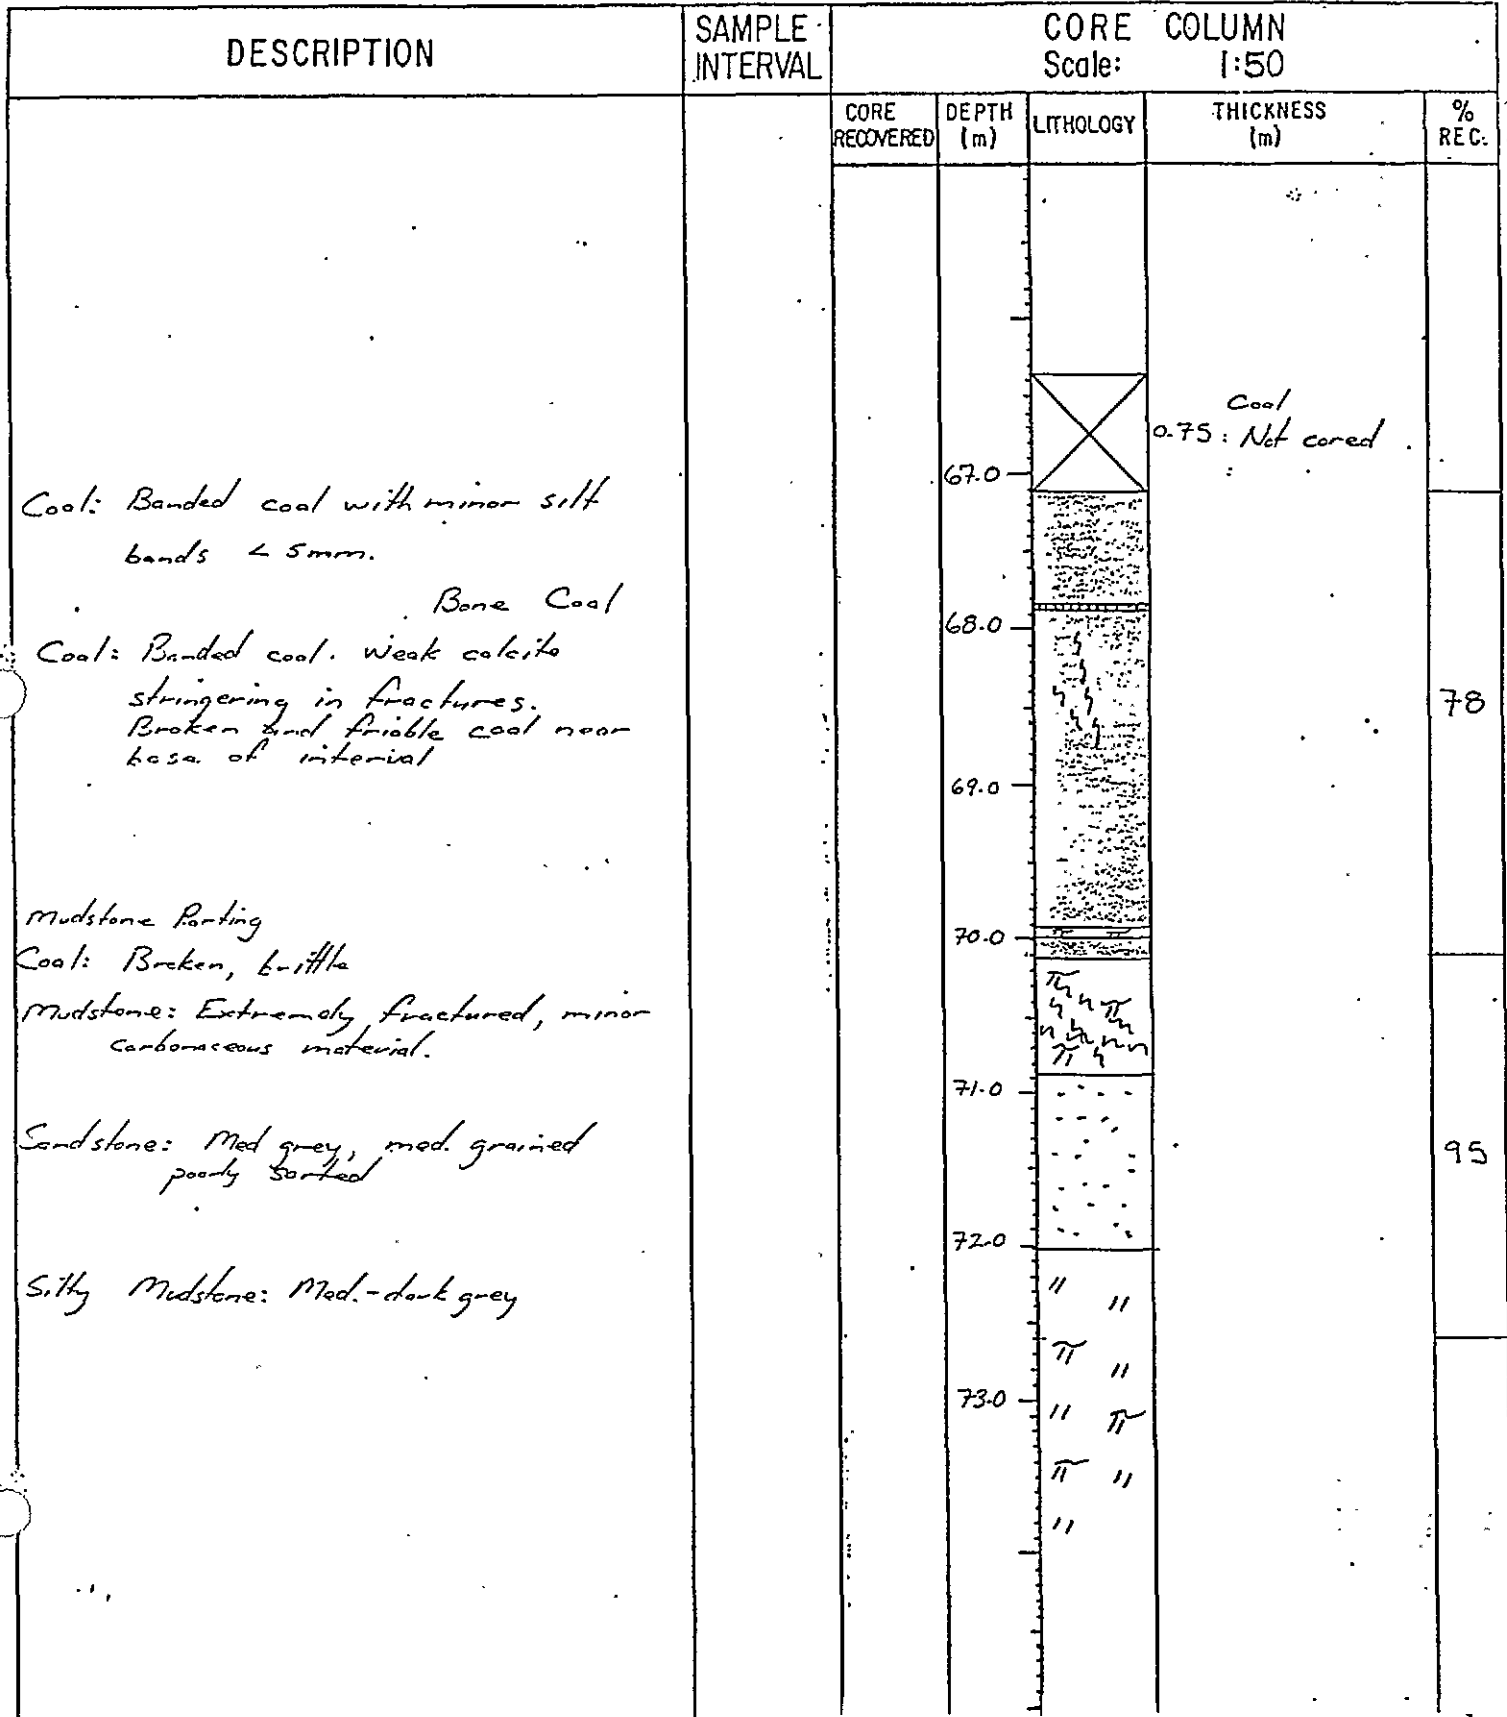 DESCRIPTION
SAMPLE INTERVAL
CORE COLUMN
Scale: 1:50
CORE RECOVERED
DEPTH (m)
LITHOLOGY
THICKNESS (m)
% REC.
Coal
0.75: Not cored
67.0
Coal: Banded coal with minor silt
bands < 5mm.
Bone Coal
68.0
Coal: Banded coal. Weak calcite
stringering in fractures.
Broken and friable coal near
base of interval
78
69.0
Mudstone Parting
70.0
Coal: Broken, brittle
Mudstone: Extremely fractured, minor
carbonaceous material.
71.0
Sandstone: Med grey, med. grained
poorly sorted
95
72.0
Silty Mudstone: Med.-dark grey
73.0